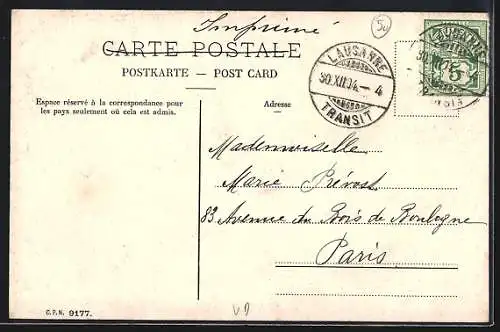 Imprimé
50
CARTE POSTALE
POSTKARTE — POST CARD
Espace réservé à la correspondance pour
les pays seulement où cela est admis.
Adresse
LAUSANNE
30.XII.04.— 4
TRANSIT
LAUSANNE
30.XII
5
TRANSIT
Mademoiselle
Marie Prévost
83 Avenue du Bois de Boulogne
Paris
C.P.N. 9177.
VD